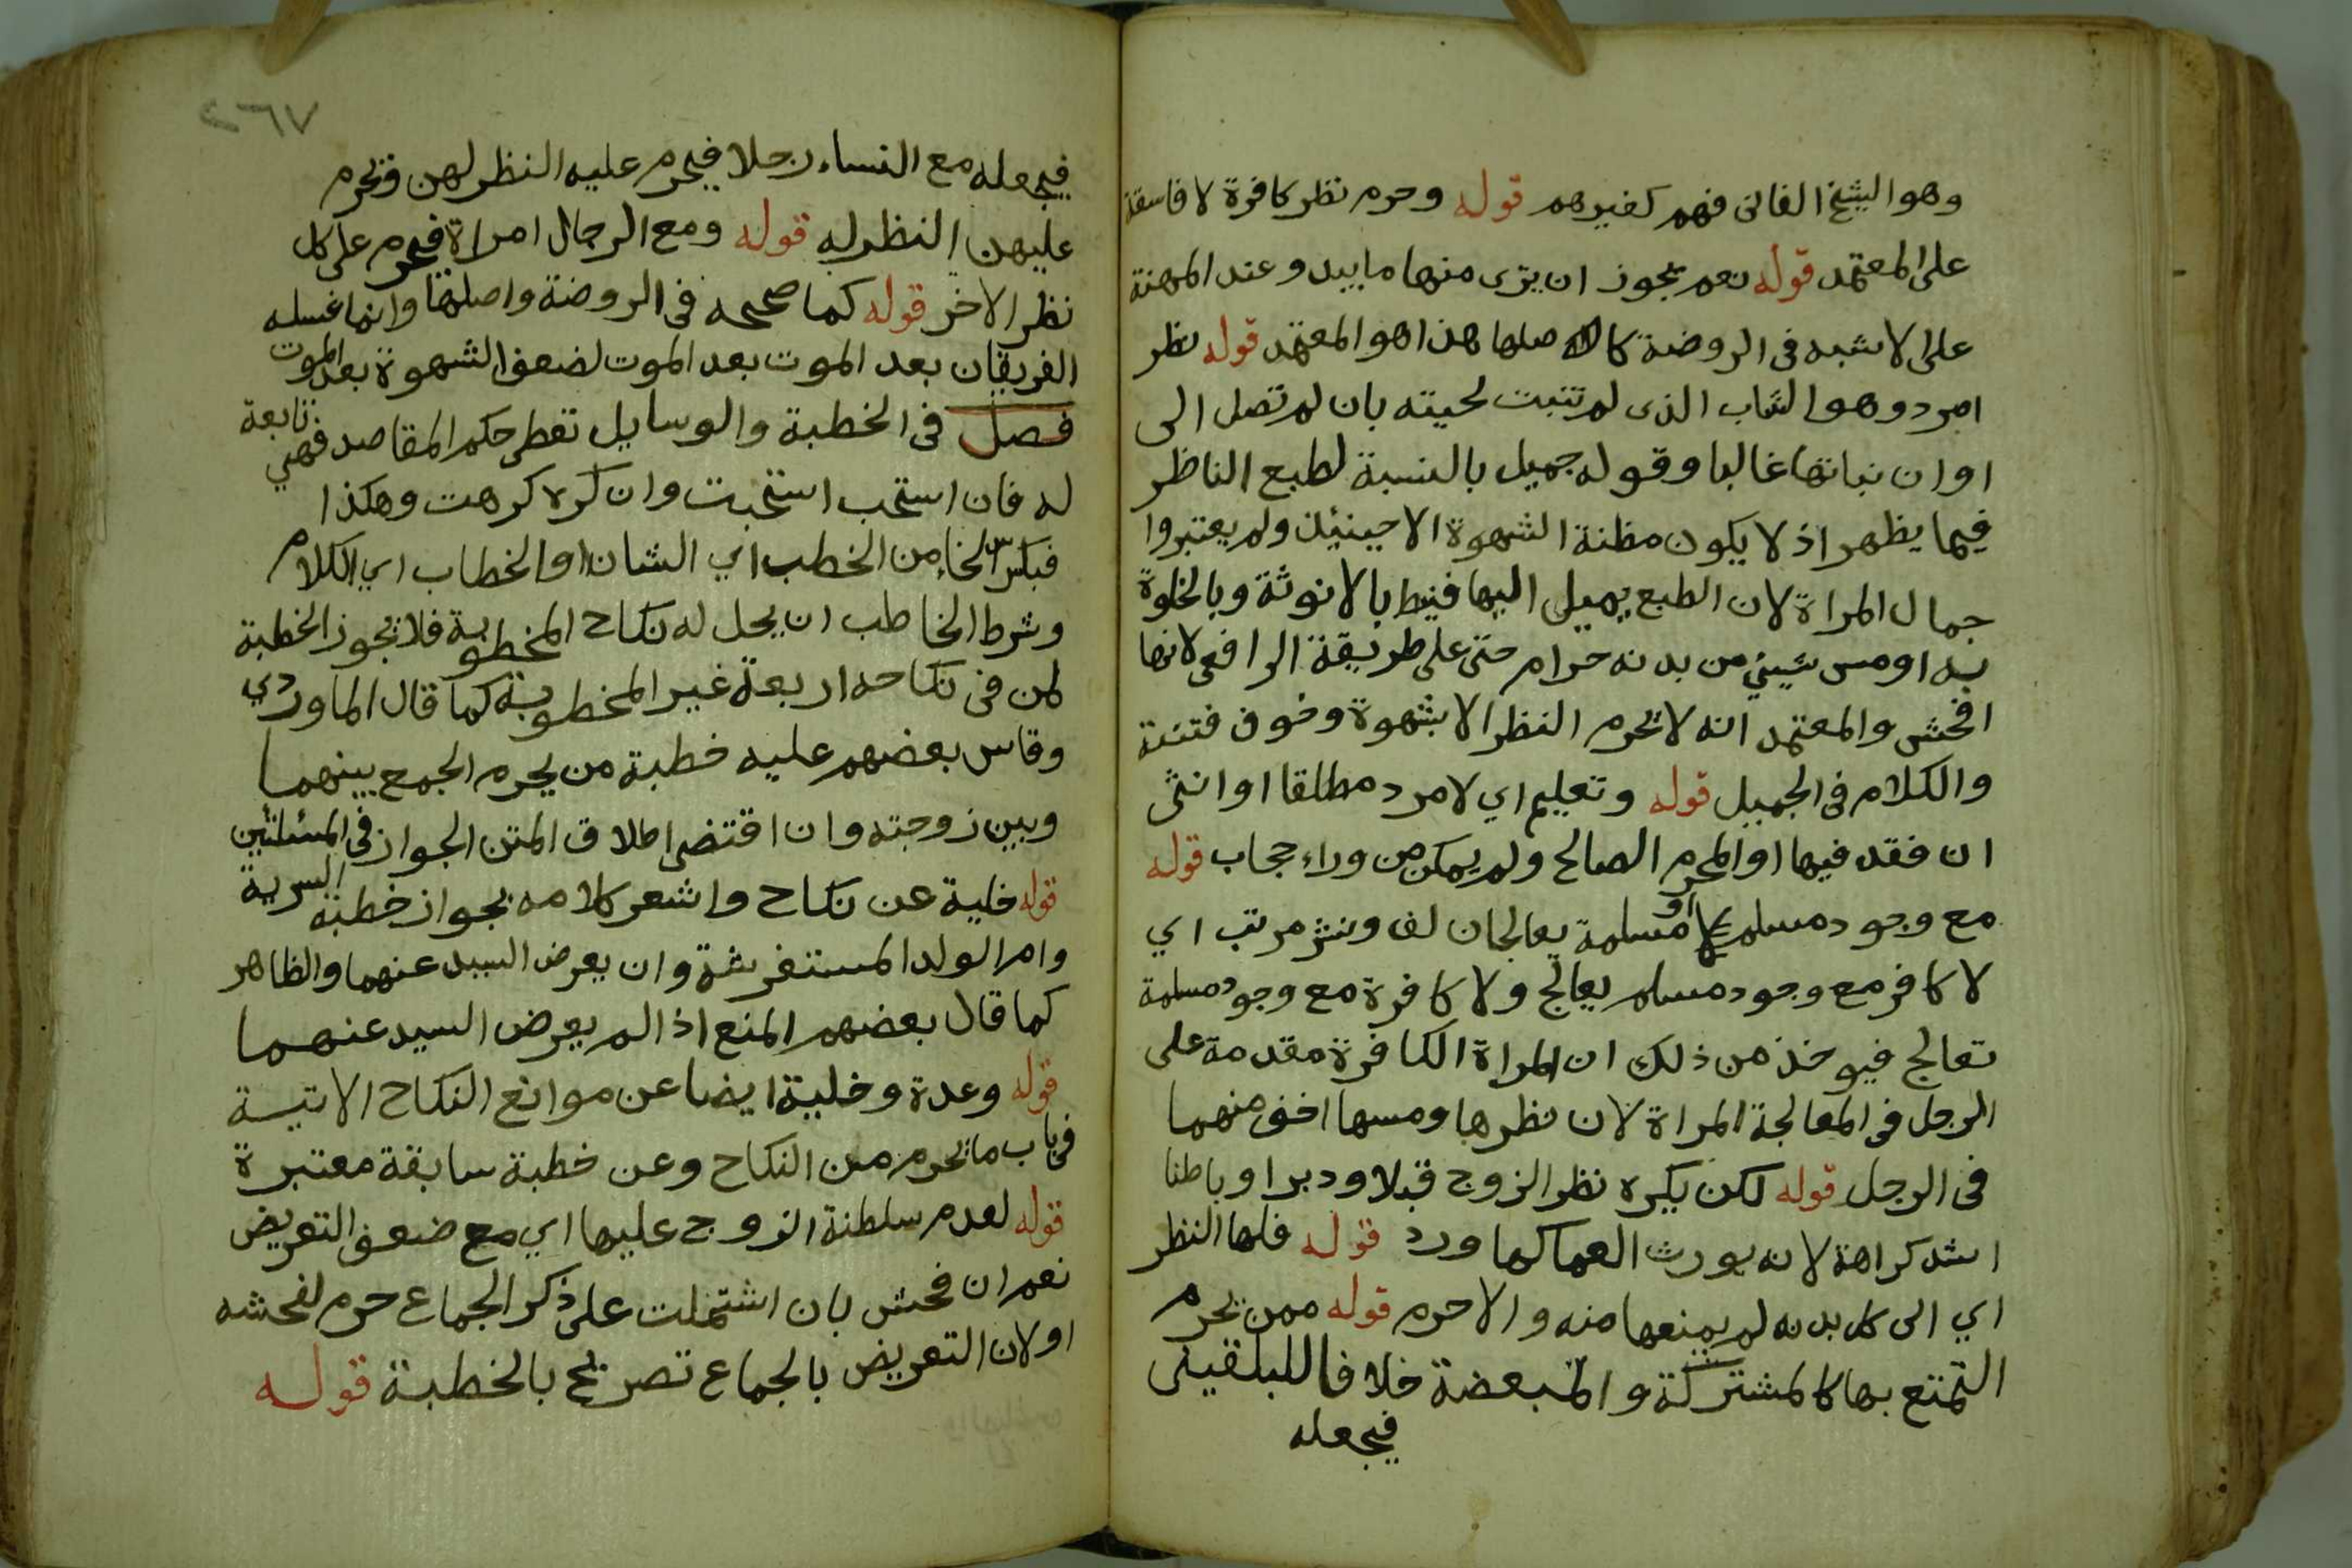 وهو الشيخ الفانى فهم كغيرهم قوله وحرم نظر كافرة لا فاسقة
على المعتمد قوله نعم يجوز ان يرى منها ما يبدو عند المهنة
على الاشبه فى الروضة كاصلها هذا هو المعتمد قوله نظر
امرد وهو الشاب الذى لم تنبت لحيته بان لم تصل الى
اوان نباتها غالبا وقوله جميل بالنسبة لطبع الناظر
فيما يظهر اذ لا يكون مظنة الشهوة الا حينئذ ولم يعتبروا
جمال المراة لان الطبع يميل اليها فنيط بالانوثة وبالخلوة
به او مس شيئ من بدنه حرام حتى على طريقة الرافعى لانها
افحش والمعتمد انه لا يحرم النظر الا بشهوة وخوف فتنة
والكلام فى الجميل قوله وتعليم اي لامرد مطلقا او انثى
ان فقد فيها او المحرم الصالح ولم يمكن من وراء حجاب قوله
مع وجود مسلم او مسلمة يعالجان لف ونشر مرتب اي
لا كافر مع وجود مسلم يعالج ولا كافرة مع وجود مسلمة
تعالج فيوخذ من ذلك ان المراة الكافرة مقدمة على
الرجل فى المعالجة المراة لان نظرها ومسها اخف منهما
فى الرجل قوله لكن يكره نظر الزوج قبلا ودبرا وباطنا
اشد كراهة لانه يورث العما كما ورد قوله فلها النظر
اي الى كل بدنه لم يمنعها منه والا حرم قوله ممن يحرم
التمتع بها كالمشتركة والمبعضة خلافا للبلقينى
فيجعله
٢٦٧
فيجعله مع النساء رجلا فيحرم عليه النظر لهن ويحرم
عليهن النظر له قوله ومع الرجال امراة فيحرم على كل
نظر الاخر قوله كما صححه فى الروضة واصلها وانما غسله
الفريقان بعد الموت بعد الموت لضعف الشهوة بعد الموت
فصل فى الخطبة والوسايل تعطى حكم المقاصد فهي تابعة
له فان استحب استحبت وان كره كرهت وهكذا
فبكسر الخاء من الخطب اي الشان او الخطاب اي الكلام
وشرط الخاطب ان يحل له نكاح المخطوبة فلا تجوز الخطبة
لمن فى نكاحه اربعة غير المخطوبة كما قال الماوردي
وقاس بعضهم عليه خطبة من يحرم الجمع بينهما
وبين زوجته وان اقتضى اطلاق المتن الجواز فى المسئلتين
قوله خلية عن نكاح واشعر كلامه بجواز خطبة السرية
وام الولد المستفرشة وان يعرض السيد عنهما والظاهر
كما قال بعضهم المنع اذا لم يعرض السيد عنهما
قوله وعدة وخلية ايضا عن موانع النكاح الاتية
فى باب ما يحرم من النكاح وعن خطبة سابقة معتبرة
قوله لعدم سلطنة الزوج عليها اي مع ضعف التعريض
نعم ان فحش بان اشتملت على ذكر الجماع حرم لفحشه
او لان التعريض بالجماع تصريح بالخطبة قوله